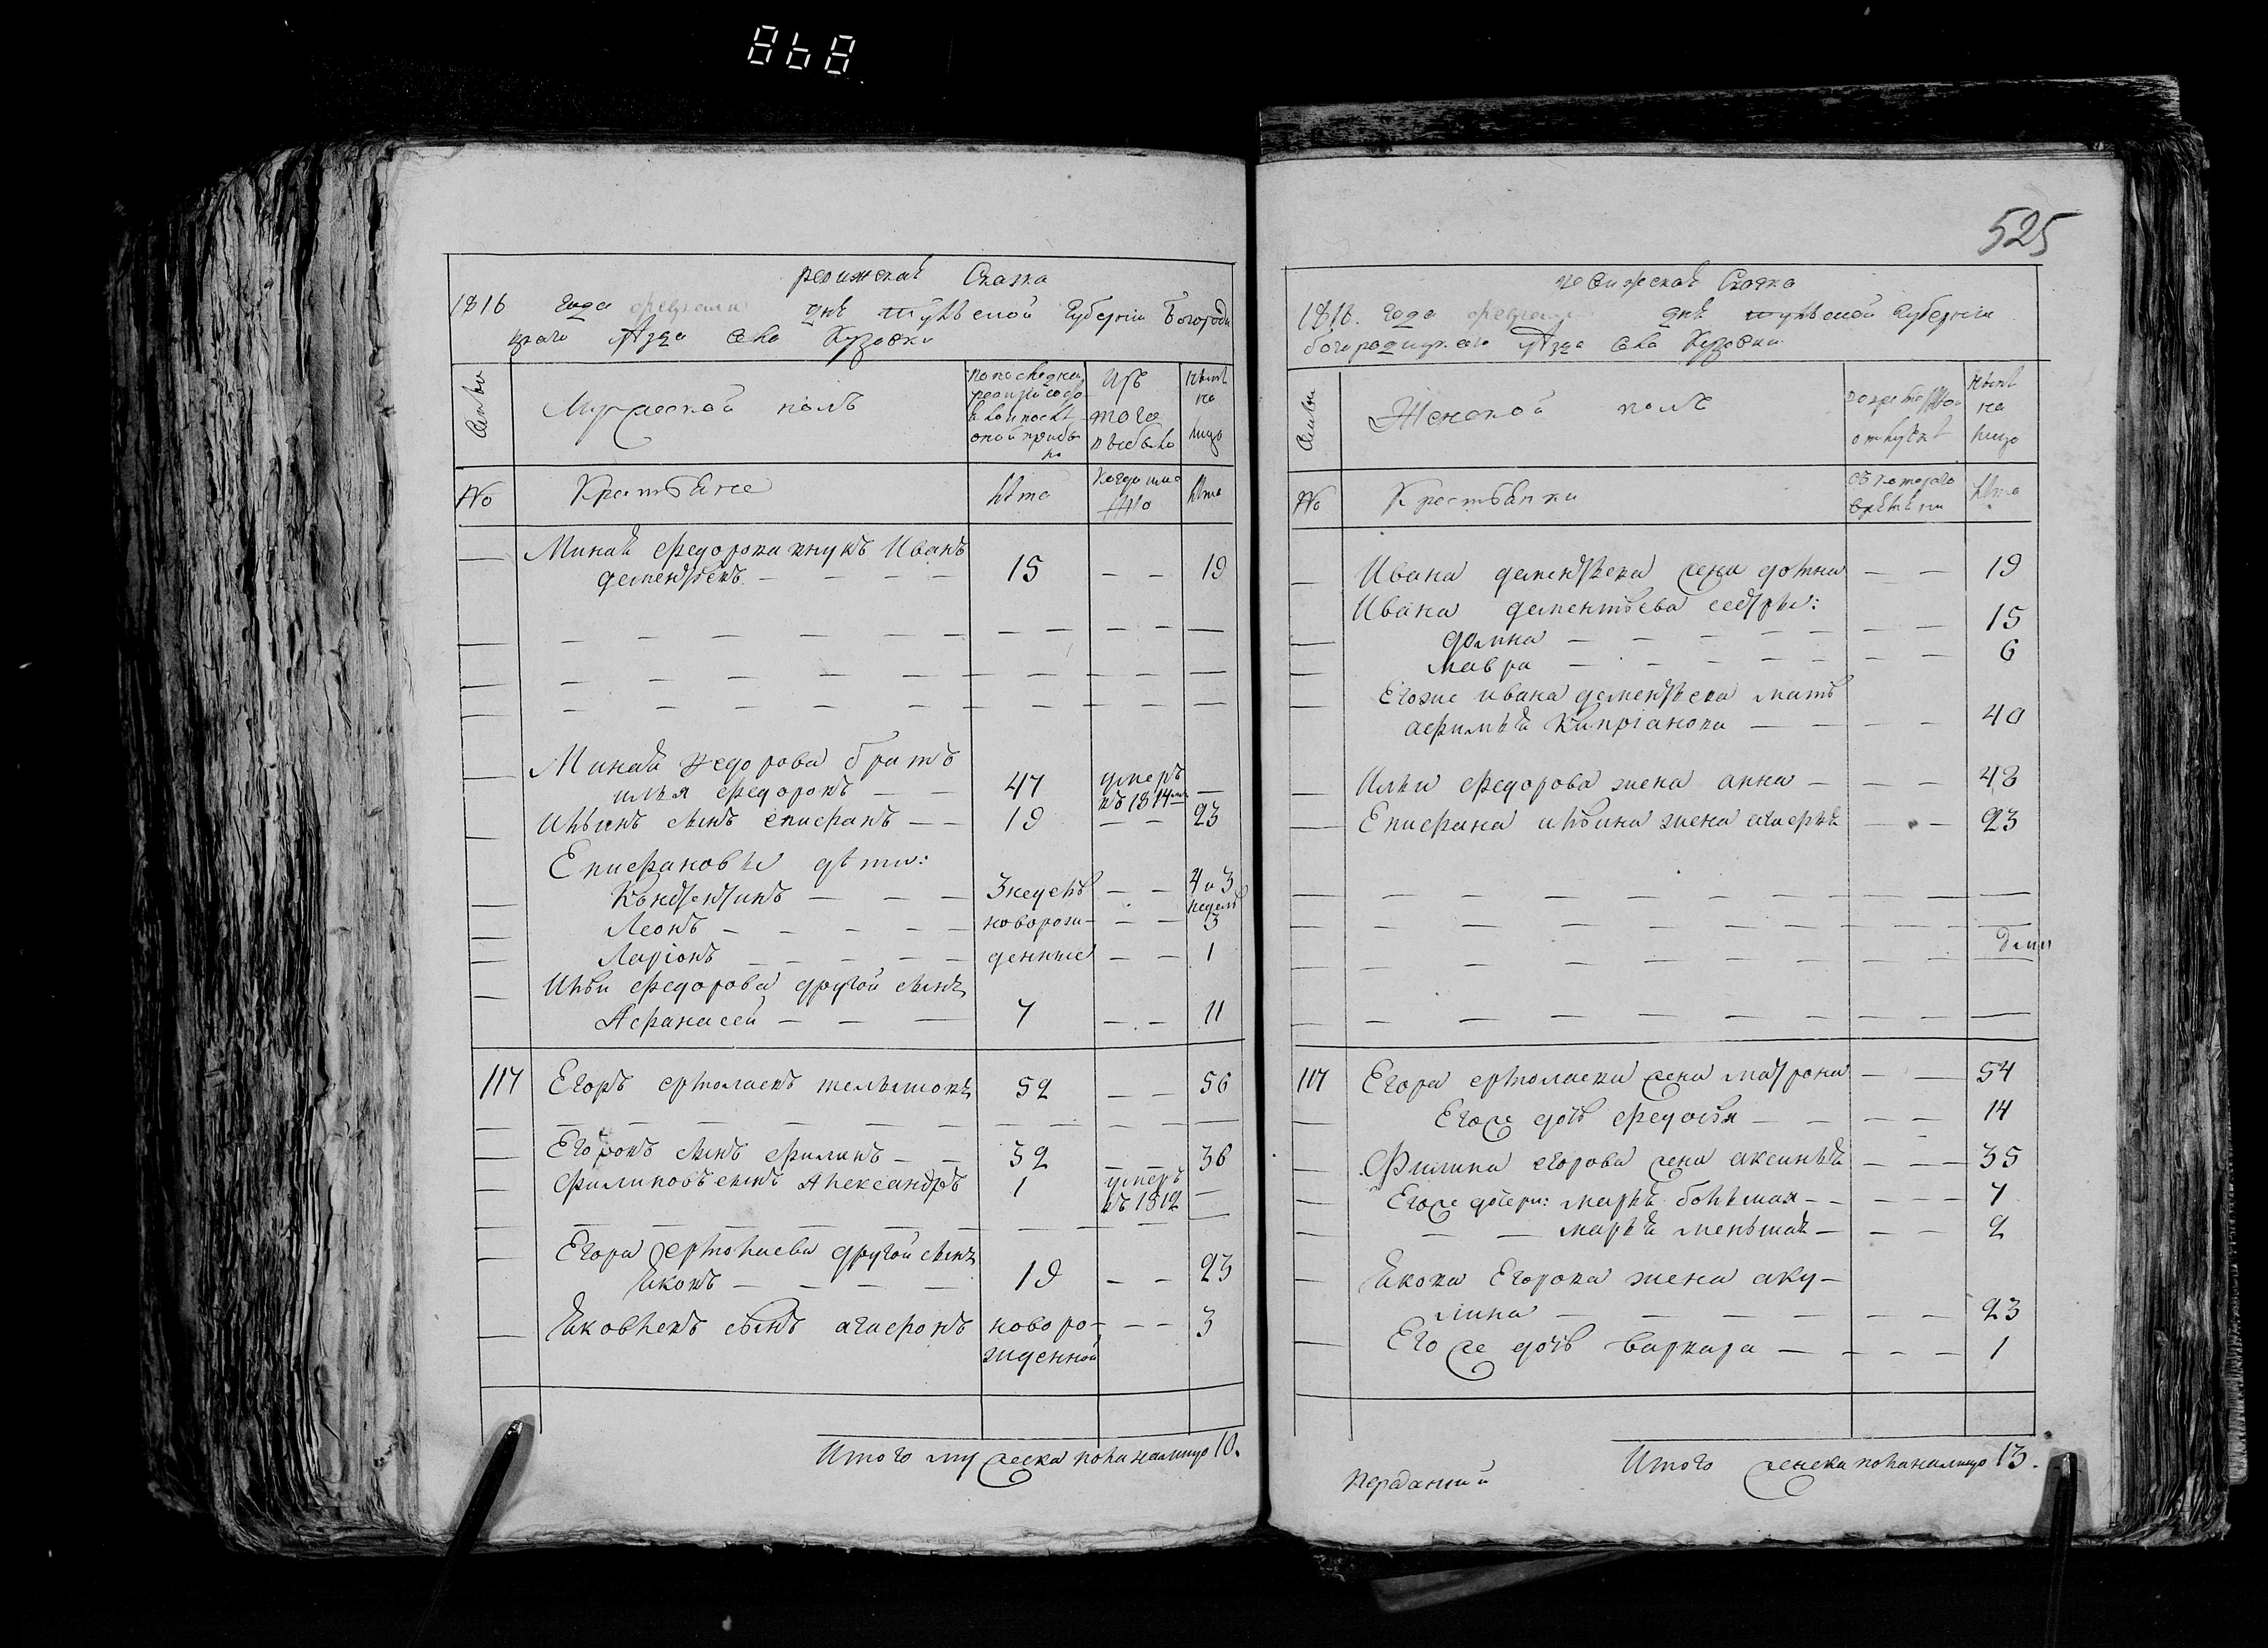 868
ревижская Сказка
1816 года февраля дня тульской Губернии Богороди
цкаго уѣзда села Кузовки
Семьи
Мужеской полъ
По последней
ревизiи состо
яло и послѣ
оной прибы
ло
Изъ
того
выбыло
Нынѣ
на
лицо
№
Крестьяне
Лѣта
Когда имя
Лѣта
Миная Федорова внукъ Иванъ
дементьевъ — — — 15 — — 19
Миная федорова братъ
илья федоровъ — — 47 умеръ въ 1814 м —
Ильинъ сынъ епифанъ — — 19 — — 23
Епифановы дѣти:
Констентинъ — — — 3 недель — — 4 и 3 недель
Леонъ — — — — — новорож — — 3
Ларiонъ — — — — — денные — — 1
Ильи федорова другой сынъ
Афанасей — — — 7 — — 11
117 Егоръ ермолаевъ 52 — — 56
Егоровъ сынъ филипъ — — 32 — — 36
Филиповъ сынъ Александръ 1 умеръ въ 1812 —
Егора ермолаева другой сынъ
Яковъ — — — — 19 — — 23
Яковлевъ сынъ агафонъ новоро — — 3
жденной
Итого мужеска пола налицо 10.
525
ревижская Сказка
1816. года февраля дня тульской губернии
богородицкаго уѣзда села Кузовки
Семьи
Женской полъ
во временной
отлучкѣ
Нынѣ
на
лицо
№
Крестьянки
Съ котораго
времени
Лѣта
Ивана дементьева жена домна — — 19
Ивана дементьева сестры:
домна — — — — — — — 15
мавра — — — — — — — 6
Егоже ивана дементьева мать
афимья Киприанова — — — — 40
Ильи федорова жена анна — — — 48
Епифана ильина жена агафья — — 23
117 Егора ермолаева жена матрона — — 54
Егоже дочь федосья — — — — 14
Филипа егорова жена аксинья — — — 35
Егоже дочери: марья большая — — — — 7
— — марья меньшая — — — 2
Якова Егорова жена аку-
лина — — — — — — — 23
Его же дочь варвара — — — — 1
Итого женска пола налицо 13.